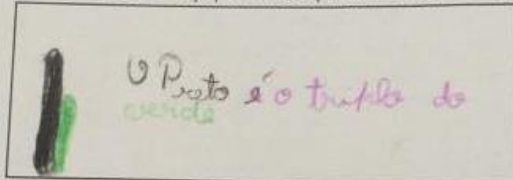 O Preto é o triplo do
verde